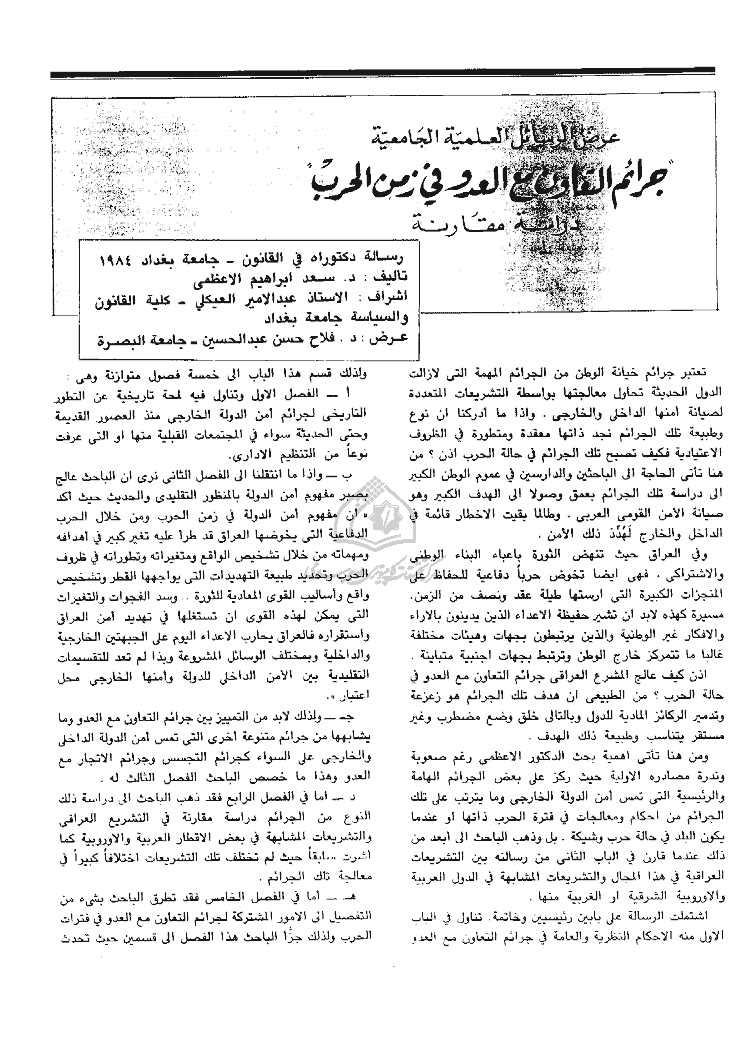 عرض الرسائل العلمية الجامعية
"جرائم التعاون مع العدو في زمن الحرب"
دراسة مقارنة
رسالة دكتوراه في القانون ـ جامعة بغداد ١٩٨٤
تاليف : د. سعد ابراهيم الاعظمى
اشراف : الاستاذ عبدالامير العيكلي ـ كلية القانون
والسياسة جامعة بغداد
عرض : د . فلاح حسن عبدالحسين ـ جامعة البصرة
تعتبر جرائم خيانة الوطن من الجرائم المهمة التى لازالت
الدول الحديثة تحاول معالجتها بواسطة التشريعات المتعددة
لصيانة أمنها الداخلي والخارجي . واذا ما أدركنا ان نوع
وطبيعة تلك الجرائم نجد ذاتها معقدة ومتطورة في الظروف
الاعتيادية فكيف تصبح تلك الجرائم في حالة الحرب اذن ؟ من
هنا تأتى الحاجة الى الباحثين والدارسين في عموم الوطن الكبير
الى دراسة تلك الجرائم بعمق وصولا الى الهدف الكبير وهو
صيانة الأمن القومى العربى . وطالما بقيت الاخطار قائمة في
الداخل والخارج لهُدّد ذلك الأمن .
وفي العراق حيث تنهض الثورة باعباء البناء الوطني
والاشتراكي . فهى ايضا تخوض حرباً دفاعية للحفاظ على
المنجزات الكبيرة التى ارستها طيلة عقد ونصف من الزمن.
مسيرة كهذه لابد ان تشير حفيظة الاعداء الذين يدينون بالاراء
والافكار غير الوطنية والذين يرتبطون بجهات وهيئات مختلفة
غالبا ما تتمركز خارج الوطن وترتبط بجهات اجنبية متباينة .
اذن كيف عالج المشرع العراقى جرائم التعاون مع العدو في
حالة الحرب ؟ من الطبيعى ان هدف تلك الجرائم هو زعزعة
وتدمير الركائز المادية للدول وبالتالى خلق وضع مضطرب وغير
مستقر يتناسب وطبيعة ذلك الهدف .
ومن هنا تأتى اهمية بحث الدكتور الاعظمى رغم صعوبة
وندرة مصادره الاولية حيث ركز على بعض الجرائم الهامة
والرئيسية التى تمس أمن الدولة الخارجي وما يترتب على تلك
الجرائم من احكام ومعالجات في فترة الحرب ذاتها او عندما
يكون البلد في حالة حرب وشيكة . بل وذهب الباحث الى أبعد من
ذلك عندما قارن في الباب الثانى من رسالته بين التشريعات
العراقية في هذا المجال والتشريعات المشابهة في الدول العربية
والاوروبية الشرقية او الغربية منها .
اشتملت الرسالة على بابين رئيسيين وخاتمة. تناول في الباب
الاول منه الاحكام النظرية والعامة في جرائم التعاون مع العدو
ولذلك قسم هذا الباب الى خمسة فصول متوازنة وهى :
أ ــ الفصل الاول وتناول فيه لمحة تاريخية عن التطور
التاريخى لجرائم أمن الدولة الخارجي منذ العصور القديمة
وحتى الحديثة سواء في المجتمعات القبلية منها او التى عرفت
نوعاً من التنظيم الادارى.
ب ــ واذا ما انتقلنا الى الفصل الثانى نرى ان الباحث عالج
بصبر مفهوم أمن الدولة بالمنظور التقليدى والحديث حيث أكد
« ان مفهوم أمن الدولة في زمن الحرب ومن خلال الحرب
الدفاعية التى يخوضها العراق قد طرأ عليه تغير كبير في اهدافه
ومهماته من خلال تشخيص الواقع ومتغيراته وتطوراته في ظروف
الحرب وتحديد طبيعة التهديدات التى يواجهها القطر وتشخيص
واقع وأساليب القوى المعادية للثورة .. وسد الفجوات والتغيرات
التى يمكن لهذه القوى ان تستغلها في تهديد أمن العراق
وأستقراره فالعراق يحارب الاعداء اليوم على الجبهتين الخارجية
والداخلية وبمختلف الوسائل المشروعة وبذا لم تعد للتقسيمات
التقليدية بين الأمن الداخلى للدولة وأمنها الخارجى محل
اعتبار ».
جـ ــ ولذلك لابد من التمييز بين جرائم التعاون مع العدو وما
يشابهها من جرائم متنوعة أخرى التى تمس أمن الدولة الداخلى
والخارجى على السواء كجرائم التجسس وجرائم الاتجار مع
العدو وهذا ما خصص الباحث الفصل الثالث له .
د ــ اما في الفصل الرابع فقد ذهب الباحث الى دراسة ذلك
النوع من الجرائم دراسة مقارنة في التشريع العراقى
والتشريعات المشابهة في بعض الاقطار العربية والاوروبية كما
اشرت سابقاً حيث لم تختلف تلك التشريعات اختلافاً كبيراً في
معالجة تلك الجرائم .
هـ ــ أما في الفصل الخامس فقد تطرق الباحث بشىء من
التفصيل الى الامور المشتركة لجرائم التعاون مع العدو في فترات
الحرب ولذلك جزّأ الباحث هذا الفصل الى قسمين حيث تحدث